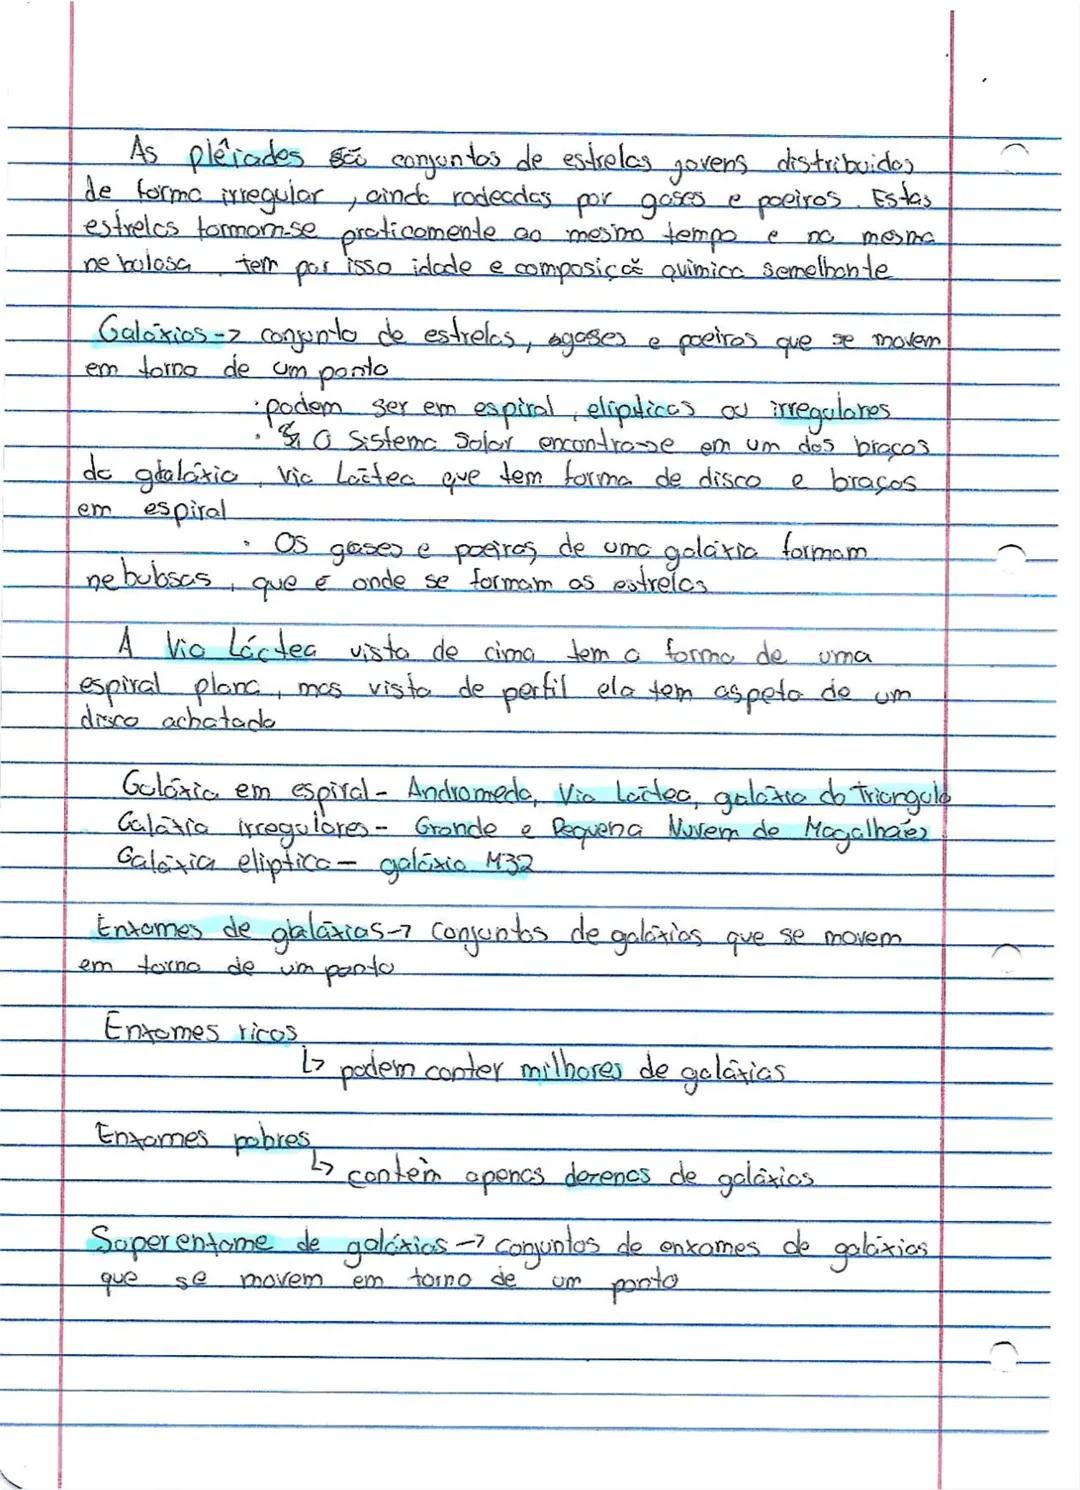 As plêiades são conjuntos de estrelas jovens distribuidas
de forma irregular, ainda rodeadas por gases e poeiras. Estas
estrelas formam-se praticamente ao mesmo tempo e na mesma
nebulosa, tem por isso idade e composição quimica semelhante
Galáxias -> conjunto de estrelas, gases e poeiras que se movem
em torno de um ponto
· podem ser em espiral, elipticas ou irregulares
· O Sistema Solar encontra-se em um dos braços
da galáxia, Via Láctea que tem forma de disco e braços
em espiral
· Os gases e poeiras de uma galáxia formam
nebulosas, que é onde se formam as estrelas
A Via Láctea vista de cima tem a forma de uma
espiral plana, mas vista de perfil ela tem aspeto de um
disco achatado
Galáxia em espiral - Andromeda, Via Láctea, galáxia do Triangulo
Galáxia irregulares - Grande e Pequena Nuvem de Magalhães
Galáxia eliptica - galáxia M32
Enxames de galáxias -> Conjuntos de galáxias que se movem
em torno de um ponto
Enxames ricos
↳ podem conter milhares de galáxias
Enxames pobres
↳ contêm apenas dezenas de galáxias
Superenxame de galáxias -> Conjuntos de enxames de galáxias
que se movem em torno de um ponto